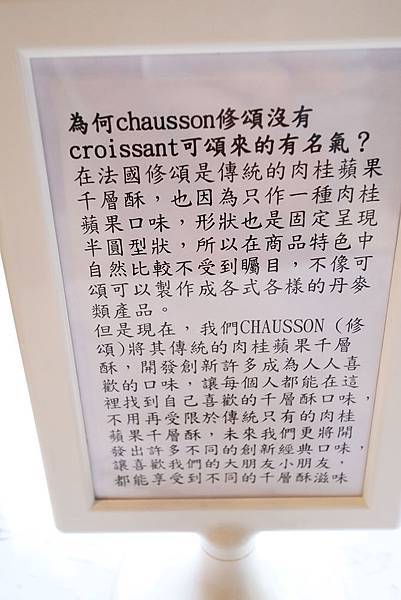 為何chausson修頌沒有
croissant可頌來的有名氣？
在法國修頌是傳統的肉桂蘋果
千層酥，也因為只作一種肉桂
蘋果口味，形狀也是固定呈現
半圓型狀，所以在商品特色中
自然比較不受到矚目，不像可
頌可以製作成各式各樣的丹麥
類產品。
但是現在，我們CHAUSSON (修
頌)將其傳統的肉桂蘋果千層
酥，開發創新許多成為人人喜
歡的口味，讓每個人都能在這
裡找到自己喜歡的千層酥口味，
不用再受限於傳統只有的肉桂
蘋果千層酥，未來我們更將開
發出許多不同的創新經典口味，
讓喜歡我們的大朋友小朋友，
都能享受到不同的千層酥滋味